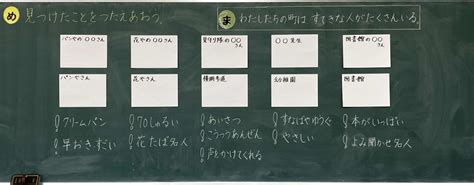 め 見つけたことをつたえあおう。
ま わたしたちの町は すてきな人がたくさんいる。
パンやの〇〇さん
花やの〇〇さん
見守り隊の〇〇さん
〇〇先生
図書館の〇〇さん
パンやさん
花やさん
横断歩道
幼稚園
図書館
!クリームパン
!早おきずい
!70しゅるい
!花たば名人
!あいさつ
!こうつうあんぜん
!声をかけてくれる
!すなばやゆうぐ
!やさしい
!本がいっぱい
!よみ聞かせ名人